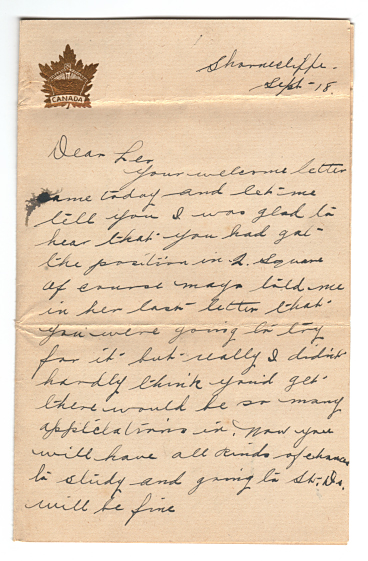 CANADA
Shorncliffe.
Sept-18.
Dear Les
Your welcome letter
came today and let me
tell you I was glad to
hear that you had got
the position in N. Square
of course mayo told me
in her last letter that
you were going to try
for it but really I didn't
hardly think you'd get
there would be so many
applications in. Now you
will have all kinds of chances
to study and going to St. Ds.
will be fine